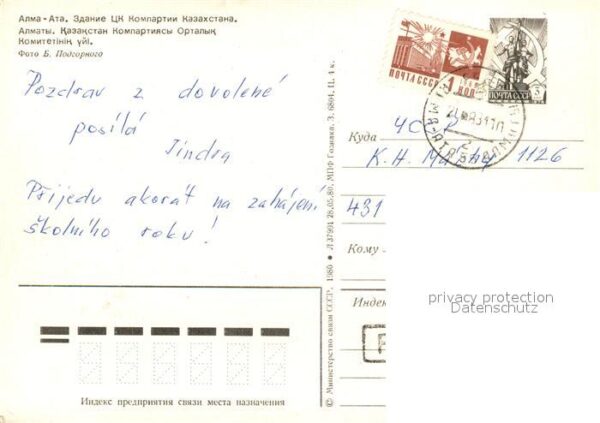 Алма-Ата. Здание ЦК Компартии Казахстана.
Алматы. Қазақстан Компартиясы Орталық
Комитетінің үйі.
Фото Б. Подгорного
Pozdrav z dovolené
posílá
Jindra
Přijedu akorát na zahájení
školního roku!
Индекс предприятия связи места назначения
© Министерство связи СССР. 1980 • Л 37991 28.05.80. МПФ Гознака. З. 6894. Ц. 4 к.
ПОЧТА СССР 1 КОП
ПОЧТА СССР
Куда ЧССР
К.Н. 1126
431
Кому
Индекс
privacy protection
Datenschutz